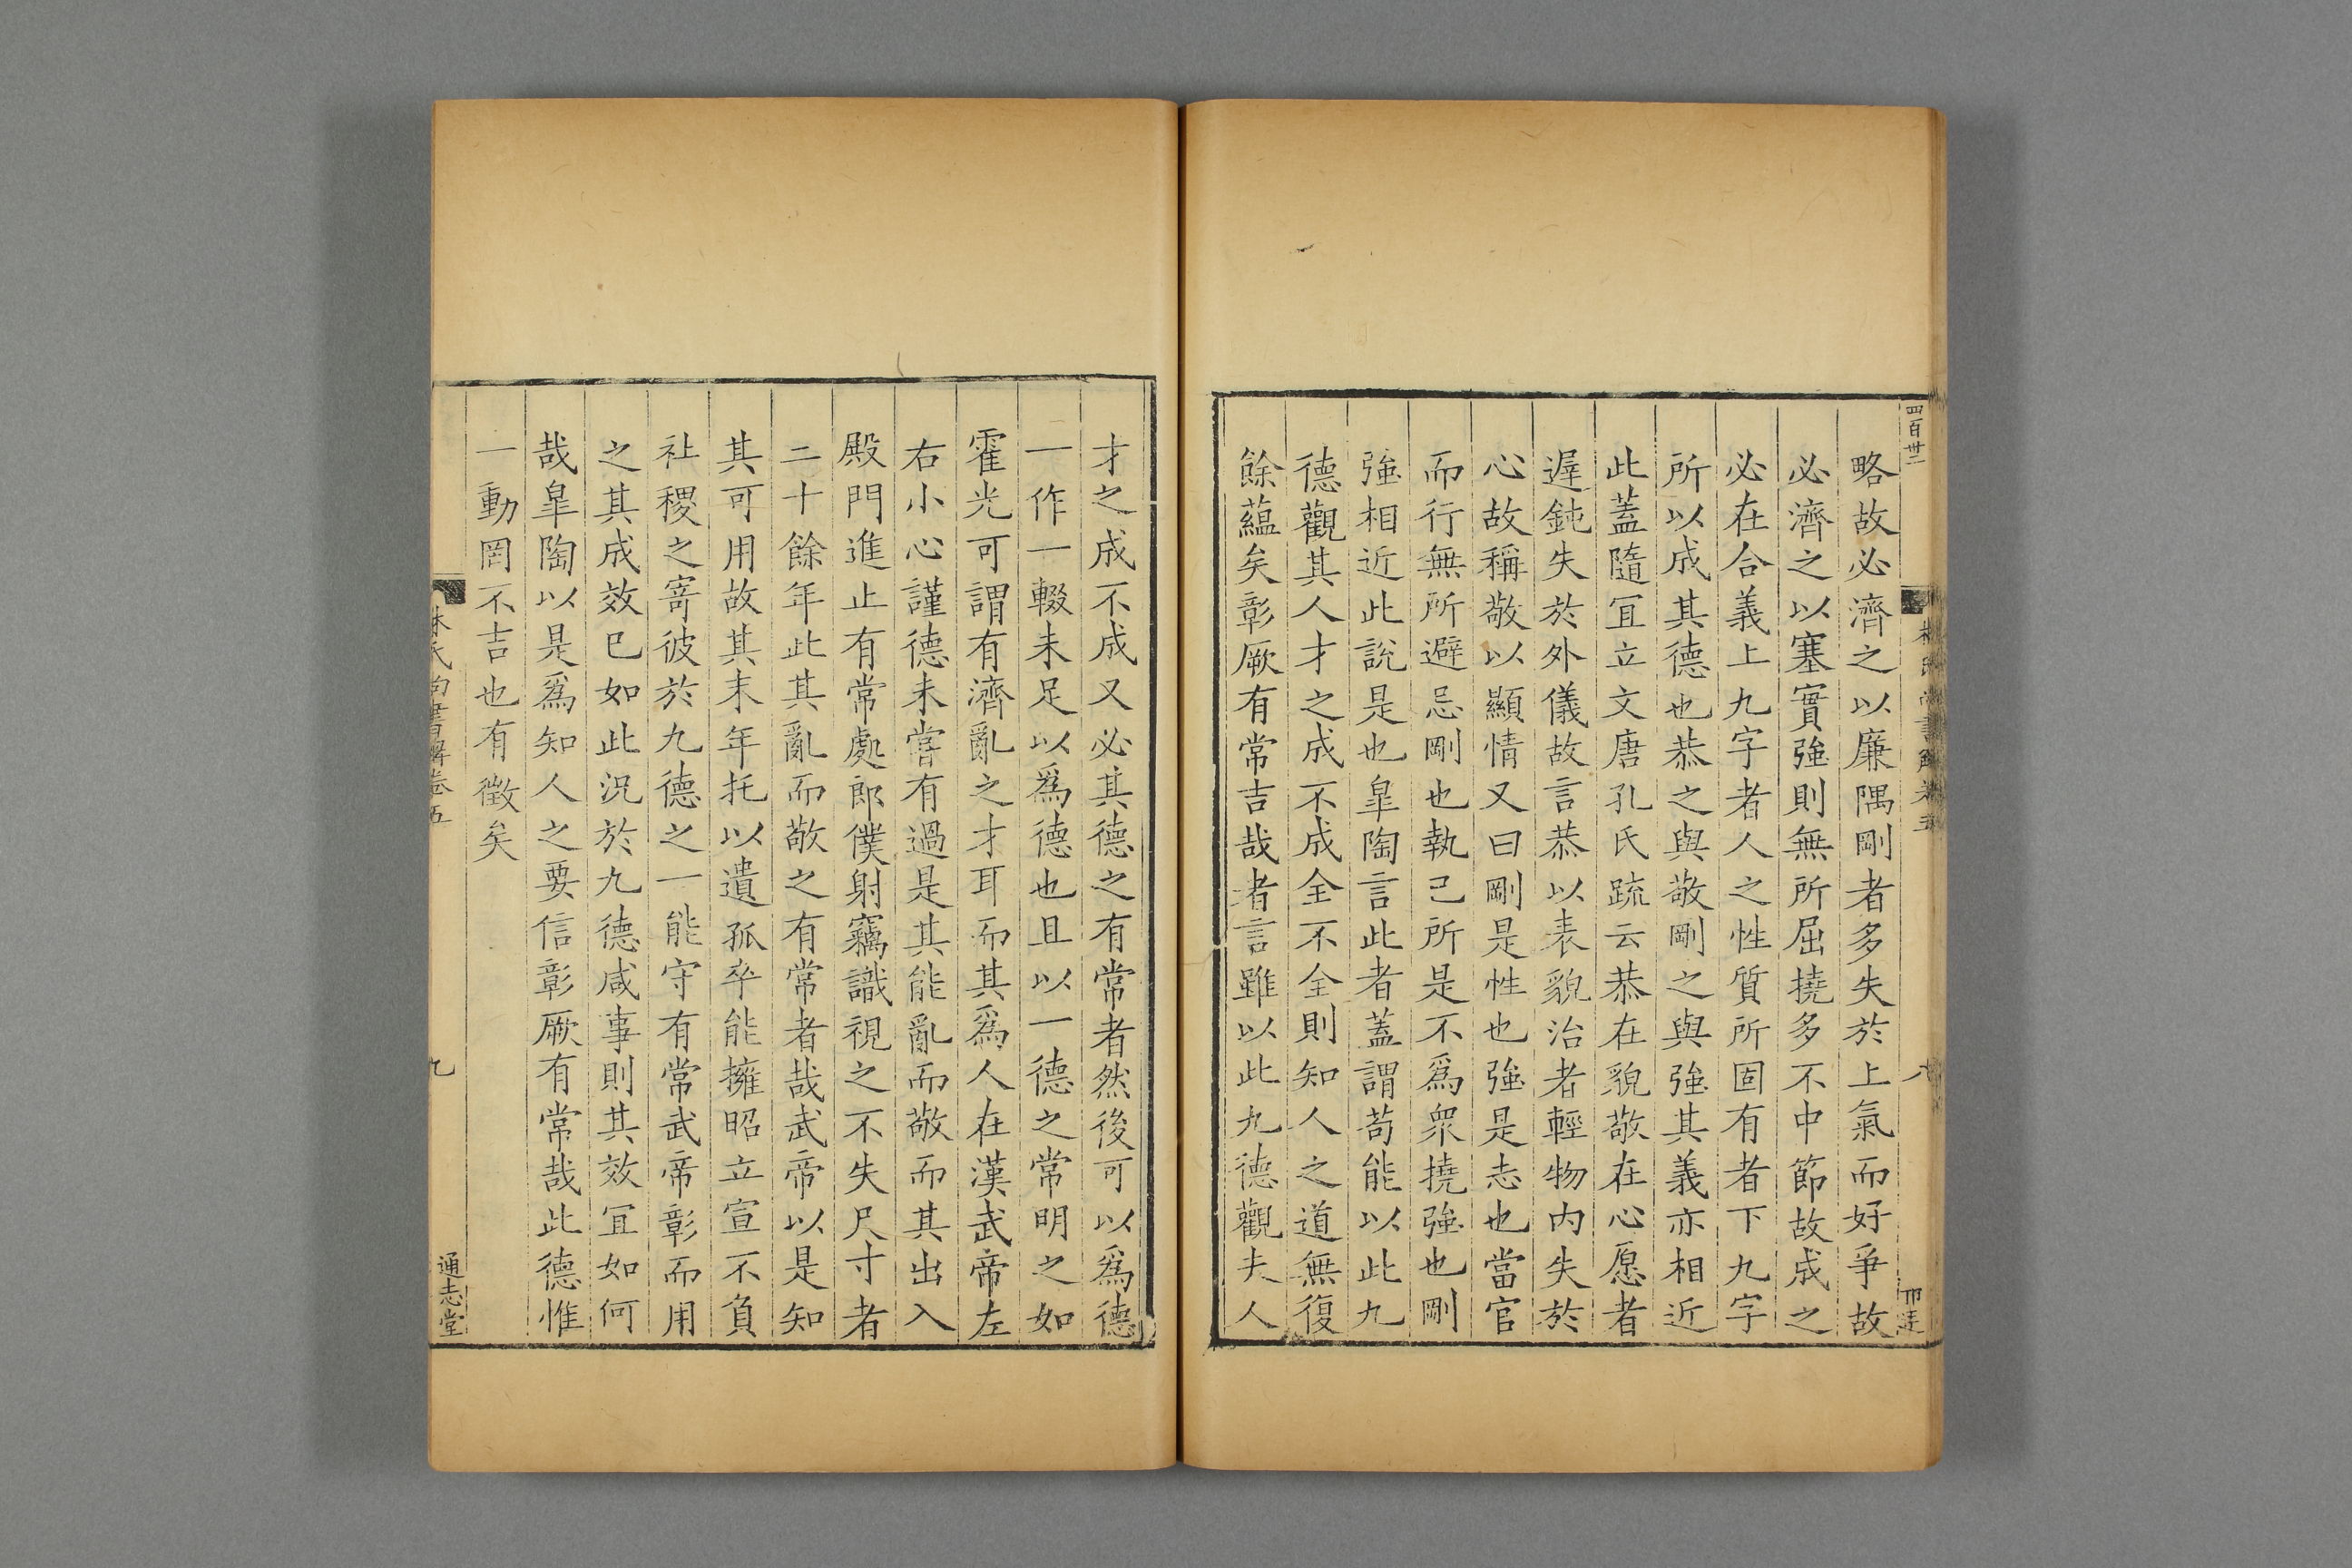 四百卅二
略故必濟之以廉隅剛者多失於上氣而好爭故
必濟之以塞實強則無所屈撓多不中節故成之
必在合義上九字者人之性質所固有者下九字
所以成其德也恭之與敬剛之與強其義亦相近
此蓋隨宜立文唐孔氏疏云恭在貌敬在心愿者
遲鈍失於外儀故言恭以表貌治者輕物內失於
心故稱敬以顯情又曰剛是性也強是志也當官
而行無所避忌剛也執己所是不為眾撓強也剛
強相近此說是也皐陶言此者蓋謂苟能以此九
德觀其人才之成不成全不全則知人之道無復
餘蘊矣彰厥有常吉哉者言雖以此九德觀夫人
才之成不成又必其德之有常者然後可以為德
一作一輟未足以為德也且以一德之常明之如
霍光可謂有濟亂之才耳而其為人在漢武帝左
右小心謹德未嘗有過是其能亂而敬而其出入
殿門進止有常處郎僕射竊識視之不失尺寸者
二十餘年此其亂而敬之有常者哉武帝以是知
其可用故其末年托以遺孤卒能擁昭立宣不負
社稷之寄彼於九德之一能守有常武帝彰而用
之其成效已如此況於九德咸事則其效宜如何
哉皐陶以是為知人之要信彰厥有常哉此德惟
一動罔不吉也有徵矣
林氏尚書解卷五
九
通志堂